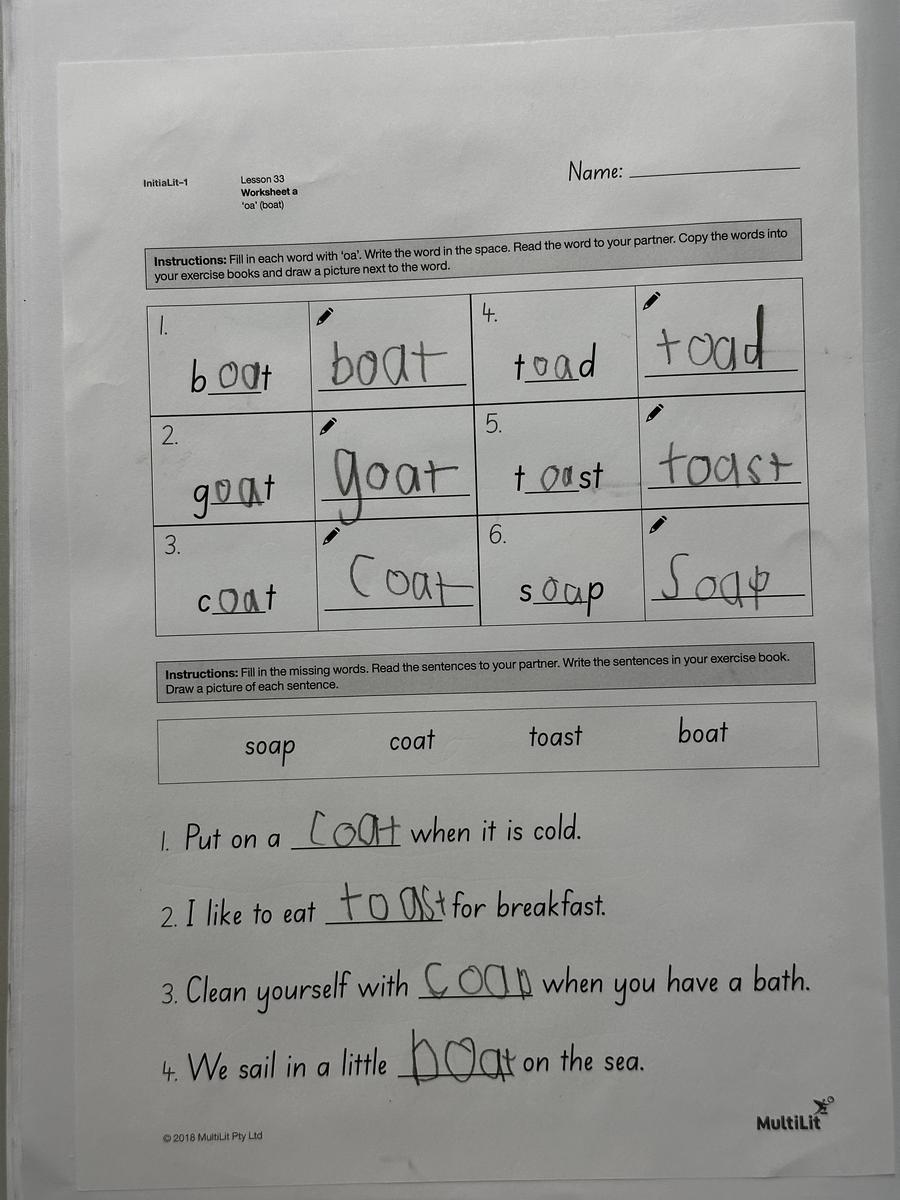 InitiaLit–1
Lesson 33
Worksheet a
‘oa’ (boat)
Name:
Instructions: Fill in each word with ‘oa’. Write the word in the space. Read the word to your partner. Copy the words into
your exercise books and draw a picture next to the word.
1.
boat
boat
4.
toad
toad
2.
goat
goat
5.
toast
toast
3.
coat
Coat
6.
soap
Soap
Instructions: Fill in the missing words. Read the sentences to your partner. Write the sentences in your exercise book.
Draw a picture of each sentence.
soap coat toast boat
1. Put on a Coat when it is cold.
2. I like to eat toast for breakfast.
3. Clean yourself with coap when you have a bath.
4. We sail in a little boat on the sea.
© 2018 MultiLit Pty Ltd
MultiLit